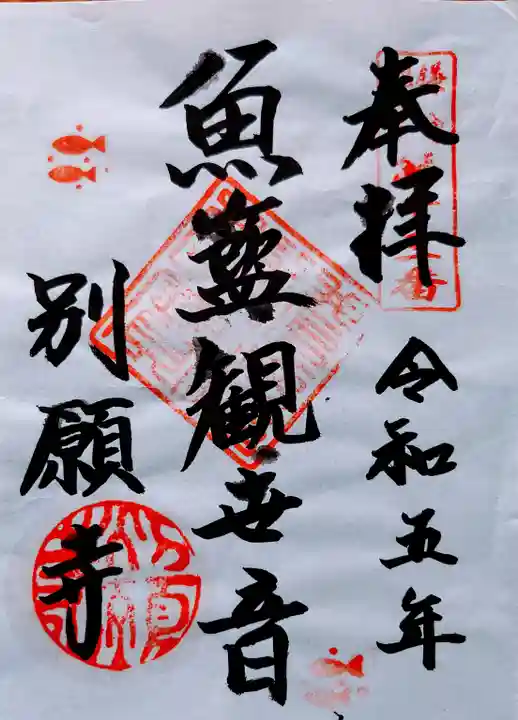 奉拝
令和五年
魚藍観世音
別願寺